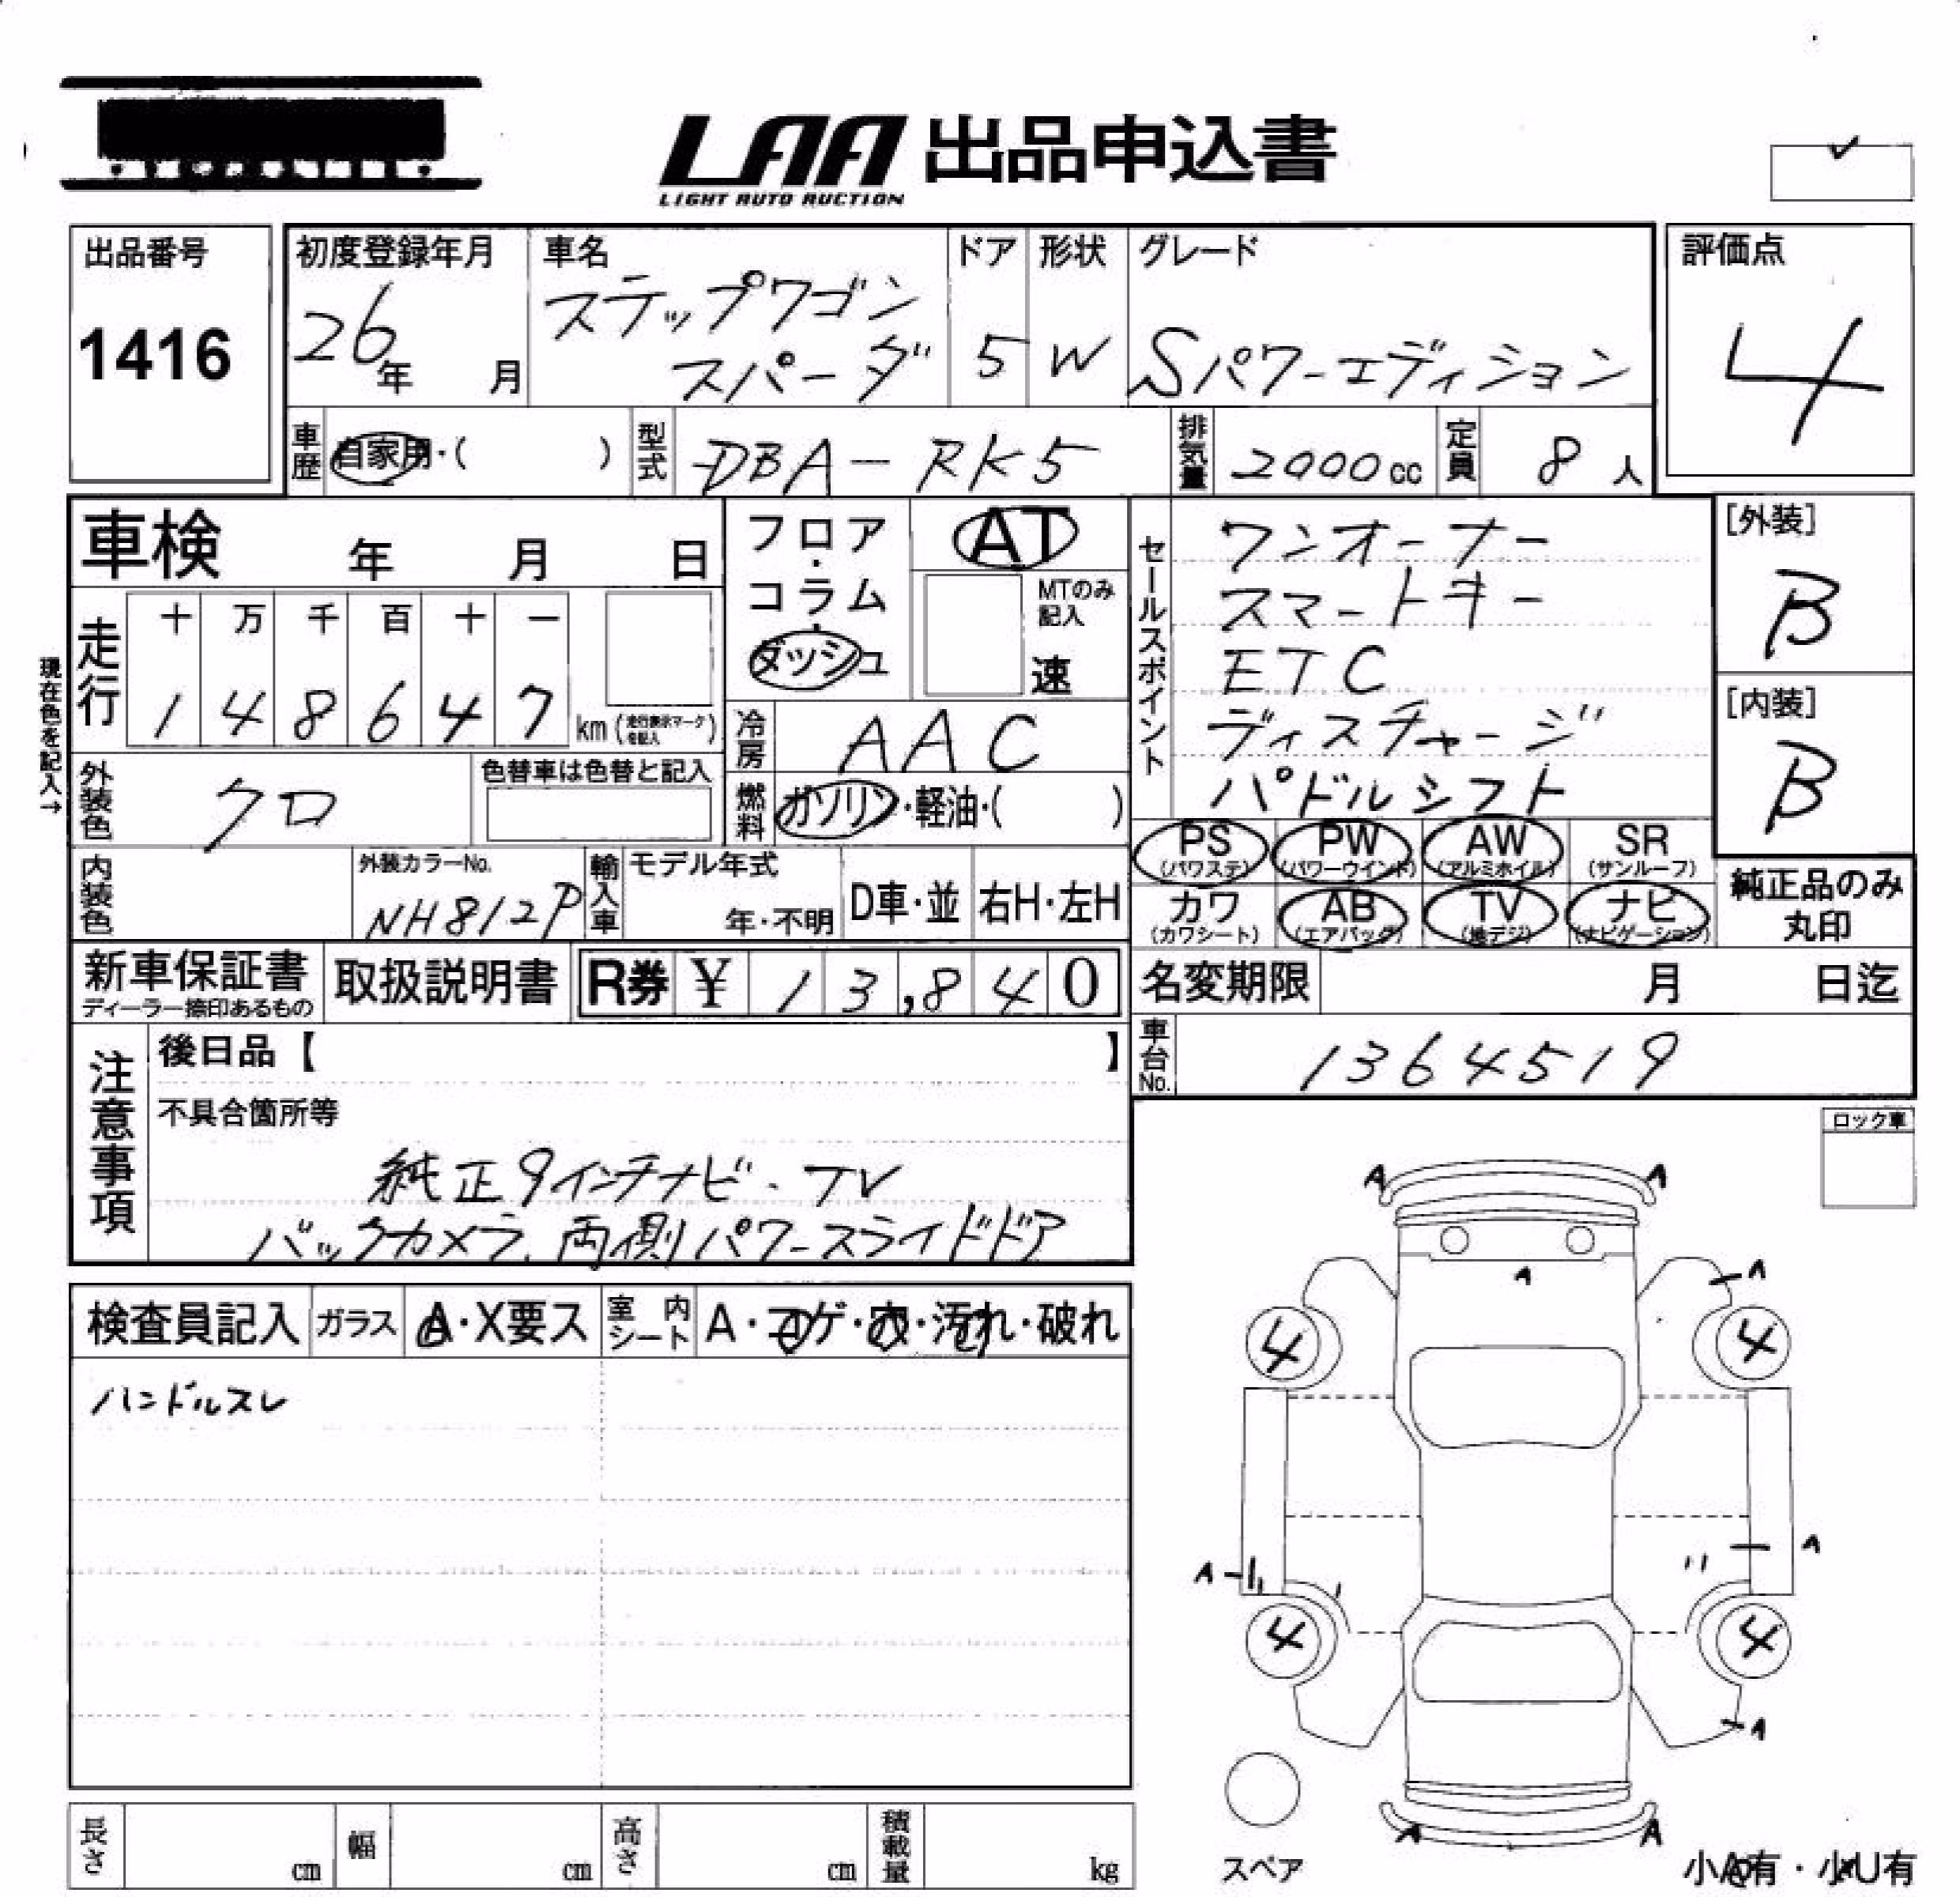 LAA 出品申込書
LIGHT AUTO AUCTION
出品番号
1416
初度登録年月
26年 月
車名
ステップワゴン
スパーダ
ドア
5
形状
W
グレード
Sパワーエディション
評価点
4
車歴
自家用・( )
型式
DBA-RK5
排気量
2000cc
定員
8人
車検 年 月 日
フロア・コラム・ダッシュ
AT
MTのみ記入
速
セールスポイント
ワンオーナー
スマートキー
ETC
ディスチャージ
パドルシフト
[外装]
B
[内装]
B
現在色を記入→
走行
十 万 千 百 十 一
1 4 8 6 4 7 km (走行表示マークを記入)
冷房
AAC
外装色
クロ
色替車は色替と記入
燃料
ガソリン・軽油・( )
PS (パワステ)
PW (パワーウインド)
AW (アルミホイル)
SR (サンルーフ)
カワ (カワシート)
AB (エアバッグ)
TV (地デジ)
ナビ (ナビゲーション)
純正品のみ
丸印
内装色
外装カラーNo.
NH812P
輸入車
モデル年式
年・不明
D車・並
右H・左H
新車保証書
ディーラー捺印あるもの
取扱説明書
R券 ¥ 13,840
名変期限 月 日迄
車台No.
1364519
注意事項
後日品【 】
不具合箇所等
純正9インチナビ・TV
バックカメラ、両側パワースライドドア
ロック車
検査員記入
ガラス
A・X要ス
室内シート
A・コゲ・穴・汚れ・破れ
ハンドルスレ
A A
A
A
4 4
A
A
4 4
A
A A
スペア
小A有・小U有
長さ cm
幅 cm
高さ cm
積載量 kg